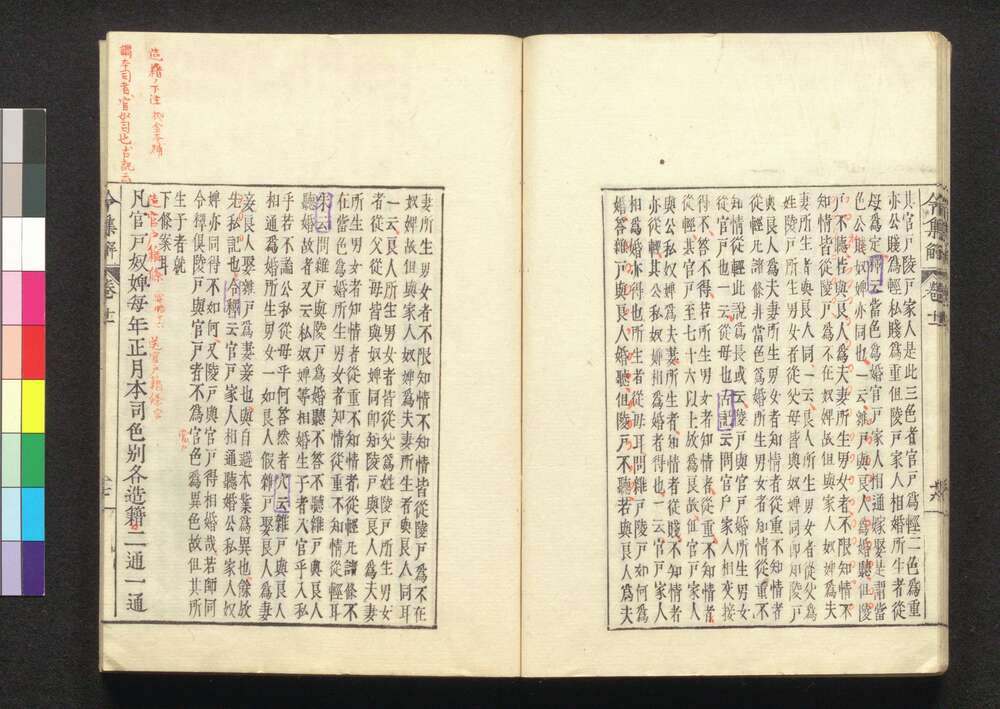 其官戶陵戶家人是此三色者官戶爲輕二色爲重
亦公賤爲輕私賤爲重但陵戶家人相婚所生者從
母爲定釋云當色爲婚官戶家人相通嫁娶是謂當
色公賤奴婢亦同也一云雜戶與良人爲婚聽但陵
戶不聽若與良人爲夫妻所生男女不限知情不
知情皆從陵戶爲不在奴婢故但與家人奴婢爲夫
妻所生者與良人同一云良人所生男女者從父爲
姓陵戶所生男女者從父母皆與奴婢同卽知陵戶
與良人爲夫妻所生男女者知情者從重不知情者
從輕凡諸條非當色爲婚所生男女者知情從重不
知情從輕此說爲長或云陵戶與官戶婚所生男女
從官戶也一云從母也古記云問官戶家人相交接
從輕其官戶至七十六以上放爲良故從官戶家人
得不答不得若所生男女者知情者從重不知情者
與公私奴婢爲夫妻所生者知情者從賤不知情者
亦從輕其公私奴婢相爲婚者得也一云官戶家人
相爲婚亦得也所生者從母耳問陵戶如何爲
婚答雜戶與良人婚聽但陵戶不聽若與良人爲夫
令集解 卷十一
妻所生男女者不限知情不知情皆從陵戶爲不在
奴婢故但與家人奴婢爲夫妻所生者與良人同耳
一云良人所生男女者皆從父爲姓陵戶所生男女
者從父從母皆與奴婢同卽知陵戶與良人爲夫妻
所生男女者知情者從重不知情者從輕凡諸條不
在當色爲婚所生男女者知情從重不知情從輕耳
朱云問雜戶與陵戶爲婚聽不答不聽雜戶與良人
聽婚故者又云私奴婢相婚生子者入官乎入私
乎若不論公私從母乎何答然者穴云雜戶與良人
相通爲婚所生男女一如良人假雜戶娶良人爲妻
妾良人娶雜戶爲妻妾也與自造本業爲異也餘故
先私記也令釋云官戶家人相通聽婚公私家人奴
婢亦同得不如何又陵戶與官戶得相婚哉若師同
令釋俱陵戶與官戶者不爲官色爲異色故但其所
生子者就
下條案耳
凡官戶奴婢每年正月本司色別各造籍二通一通
令集解 卷十一
造籍ノ下注
謂本司者官奴司也古記云